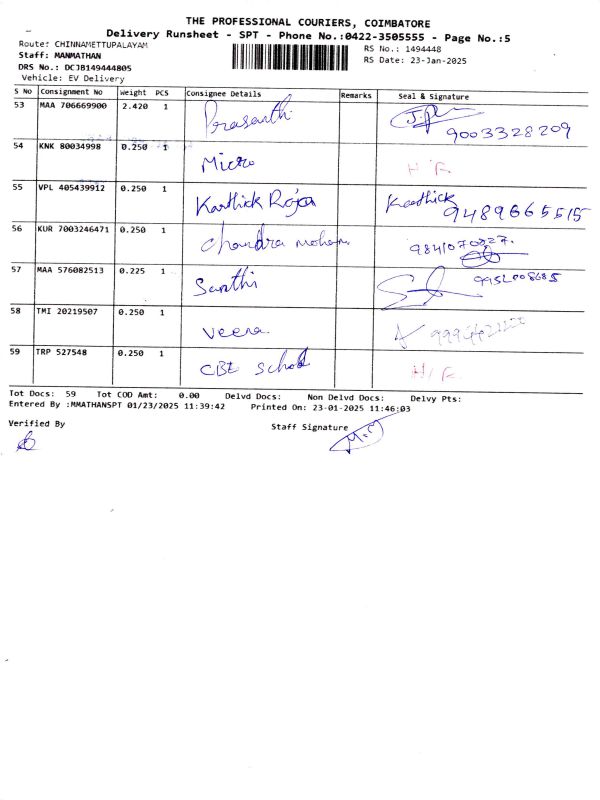 THE PROFESSIONAL COURIERS, COIMBATORE
Delivery Runsheet - SPT - Phone No.:0422-3505555 - Page No.:5
Route: CHINNAMETTUPALAYAM
RS No.: 1494448
Staff: MANMATHAN
RS Date: 23-Jan-2025
DRS No.: DCJB149444805
Vehicle: EV Delivery
S No Consignment No Weight PCS Consignee Details Remarks Seal & Signature
53 MAA 706669900 2.420 1 Prasanth
9003328209
54 KNK 80034998 0.250 1 Micro H/F
55 VPL 405439912 0.250 1 Karthick Raja Karthick
9489665515
56 KUR 7003246471 0.250 1 Chandra mohan
57 MAA 576082513 0.225 1 Santhi
58 TMI 20219507 0.250 1 Veena
59 TRP 527548 0.250 1 CBE School H/F
Tot Docs: 59 Tot COD Amt: 0.00 Delvd Docs: Non Delvd Docs: Delvy Pts:
Entered By :MMATHANSPT 01/23/2025 11:39:42 Printed On: 23-01-2025 11:46:03
Verified By Staff Signature